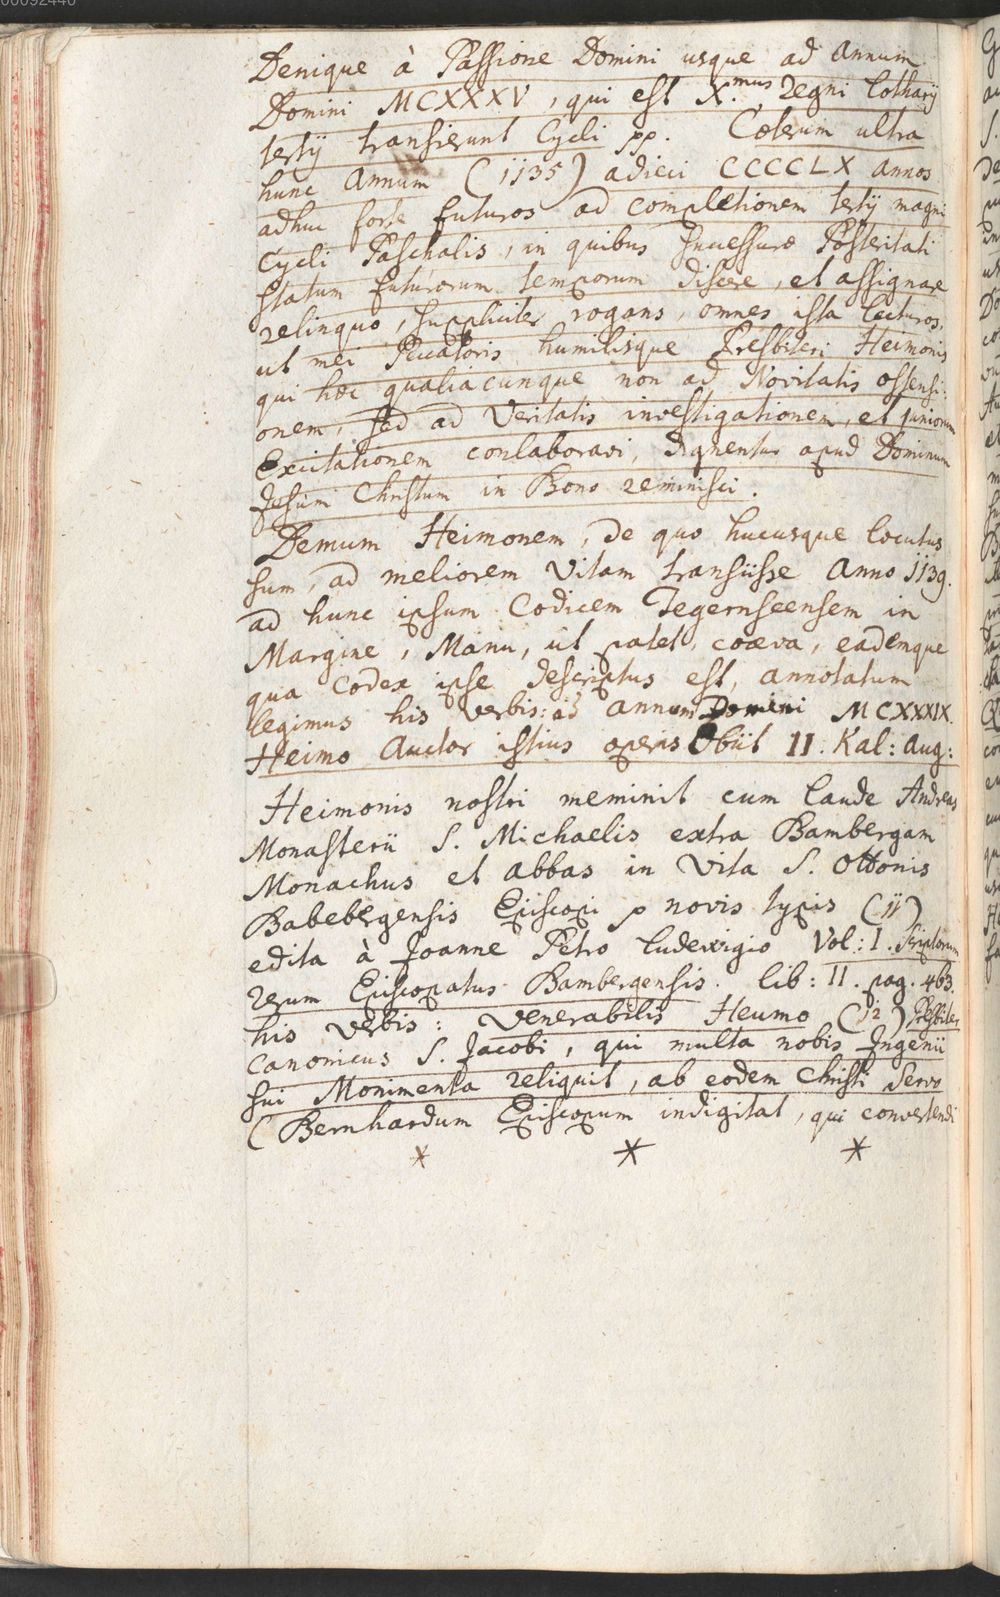 Denique à Passione Domini usque ad Annum
Domini MCXXXV, qui est X.mus Regni Lotharij
tertij transierunt Cycli pp. Cœterum ultra
hunc Annum (1135) adieci CCCCLX annos
adhuc forte futuros ad completionem tertij magni
Cycli Paschalis, in quibus successuræ Posteritati
statum futurorum temporum discere, et assignare
relinquo, suppliciter rogans, omnes ista lecturos,
ut mei Peccatoris humilisque Presbiteri Heimonis
qui hæc qualiacunque non ad Novitatis ostensi-
onem, sed ad Veritatis investigationem, et juniorum
Excitationem conlaboravi, dignentur apud Dominum
Jesum Christum in Bono reminisci.
Demum Heimonem, de quo hucusque locutus
sum, ad meliorem Vitam transiisse Anno 1139.
ad hunc ipsum Codicem Tegernseensem in
Margine, Manu, ut patet, coæva, eademque
qua Codex ipse descriptus est, annotatum
legimus his verbis: annum Domini MCXXXIX.
Heimo Auctor istius operis Obiit II. Kal: Aug:
Heimonis nostri meminit cum laude Andreas
Monasterii S. Michaelis extra Bambergam
Monachus et abbas in Vita S. Ottonis
Babebergensis Episcopi p novis typis (11)
edita à Joanne Petro Ludewigio Vol: I. Scriptorum
rerum Episcopatus Bambergensis. lib: II. pag. 463.
his verbis: Venerabilis Heumo (12) Presbiter
Canonicus S. Jacobi, qui multa nobis Ingenii
sui Monimenta reliquit, ab eodem Christi Servo
(Bernhardum Episcopum indigitat, qui convertendi
* * *